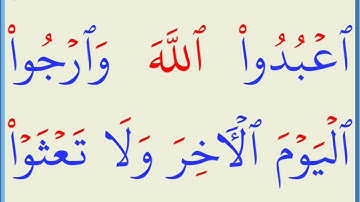 ٱعْبُدُوا۟ ٱللَّهَ وَٱرْجُوا۟
ٱلْيَوْمَ ٱلْـَٔاخِرَ وَلَا تَعْثَوْا۟